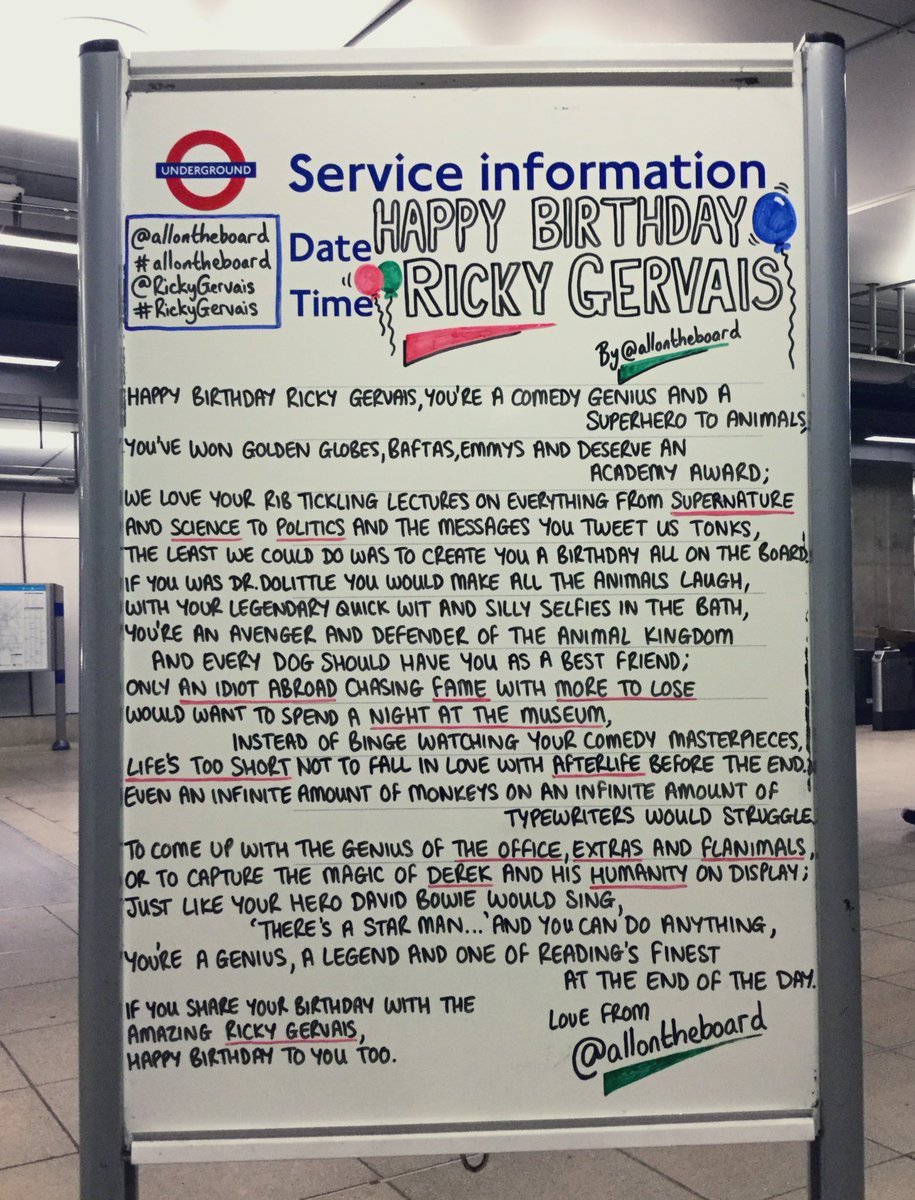 UNDERGROUND
Service information
@allontheboard
#allontheboard
@RickyGervais
#RickyGervais
Date HAPPY BIRTHDAY
Time RICKY GERVAIS
By @allontheboard
HAPPY BIRTHDAY RICKY GERVAIS, YOU'RE A COMEDY GENIUS AND A
SUPERHERO TO ANIMALS,
YOU'VE WON GOLDEN GLOBES, BAFTAS, EMMYS AND DESERVE AN
ACADEMY AWARD;
WE LOVE YOUR RIB TICKLING LECTURES ON EVERYTHING FROM SUPERNATURE
AND SCIENCE TO POLITICS AND THE MESSAGES YOU TWEET US TONKS,
THE LEAST WE COULD DO WAS TO CREATE YOU A BIRTHDAY ALL ON THE BOARD.
IF YOU WAS DR. DOLITTLE YOU WOULD MAKE ALL THE ANIMALS LAUGH,
WITH YOUR LEGENDARY QUICK WIT AND SILLY SELFIES IN THE BATH,
YOU'RE AN AVENGER AND DEFENDER OF THE ANIMAL KINGDOM
AND EVERY DOG SHOULD HAVE YOU AS A BEST FRIEND;
ONLY AN IDIOT ABROAD CHASING FAME WITH MORE TO LOSE
WOULD WANT TO SPEND A NIGHT AT THE MUSEUM,
INSTEAD OF BINGE WATCHING YOUR COMEDY MASTERPIECES,
LIFE'S TOO SHORT NOT TO FALL IN LOVE WITH AFTERLIFE BEFORE THE END.
EVEN AN INFINITE AMOUNT OF MONKEYS ON AN INFINITE AMOUNT OF
TYPEWRITERS WOULD STRUGGLE
TO COME UP WITH THE GENIUS OF THE OFFICE, EXTRAS AND FLANIMALS,
OR TO CAPTURE THE MAGIC OF DEREK AND HIS HUMANITY ON DISPLAY;
JUST LIKE YOUR HERO DAVID BOWIE WOULD SING,
'THERE'S A STAR MAN...' AND YOU CAN DO ANYTHING,
YOU'RE A GENIUS, A LEGEND AND ONE OF READING'S FINEST
AT THE END OF THE DAY.
IF YOU SHARE YOUR BIRTHDAY WITH THE
AMAZING RICKY GERVAIS,
HAPPY BIRTHDAY TO YOU TOO.
LOVE FROM
@allontheboard